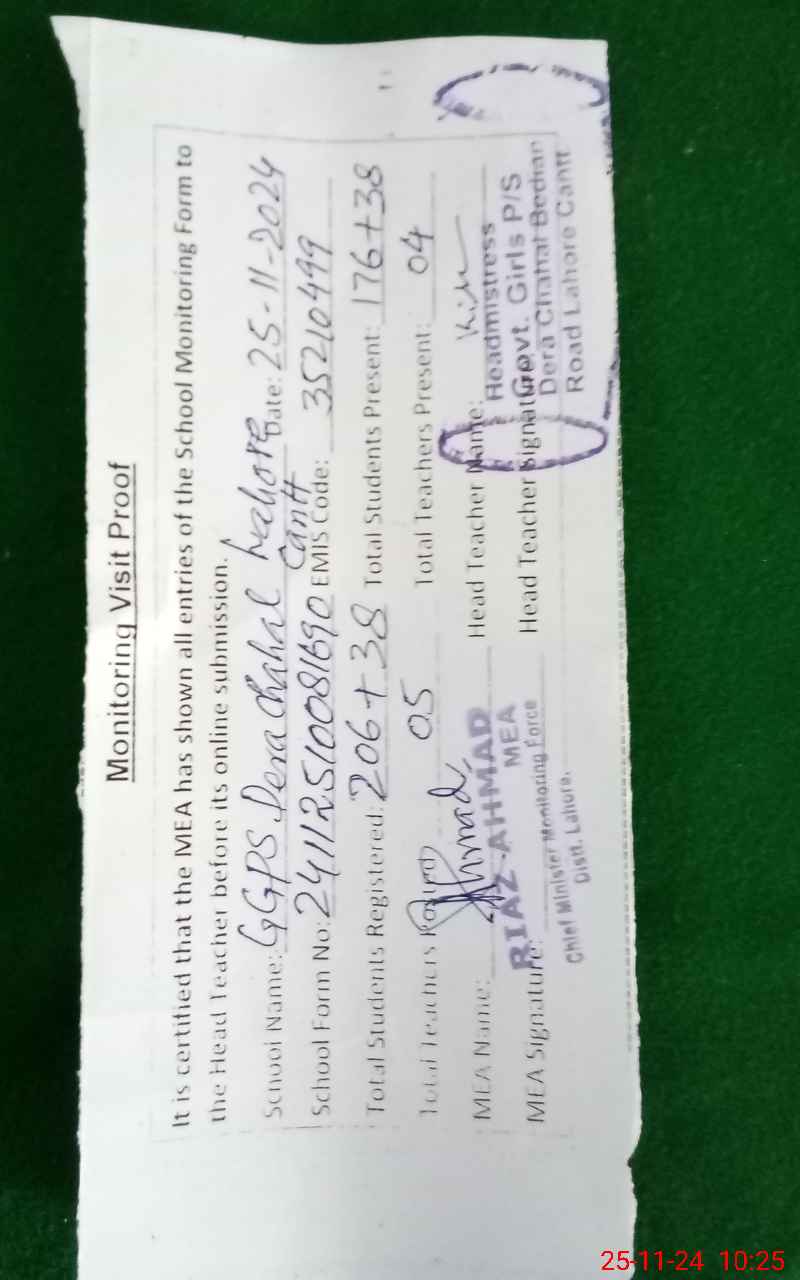 Monitoring Visit Proof
It is certified that the MEA has shown all entries of the School Monitoring Form to
the Head Teacher before its online submission.
School Name: GGPS Dera Chahal Lahore Cantt Date: 25-11-2024
School Form No: 24112510081690 EMIS Code: 35210499
Total Students Registered: 206+38 Total Students Present: 176+38
Total Teachers Posted: 05 Total Teachers Present: 04
MEA Name: Head Teacher Name:
MEA Signature: Head Teacher Signature:
RIAZ AHMAD
MEA
Chief Minister Monitoring Force
Distt. Lahore.
Headmistress
Govt. Girls P/S
Dera Chahal Bedian
Road Lahore Cantt
25-11-24 10:25